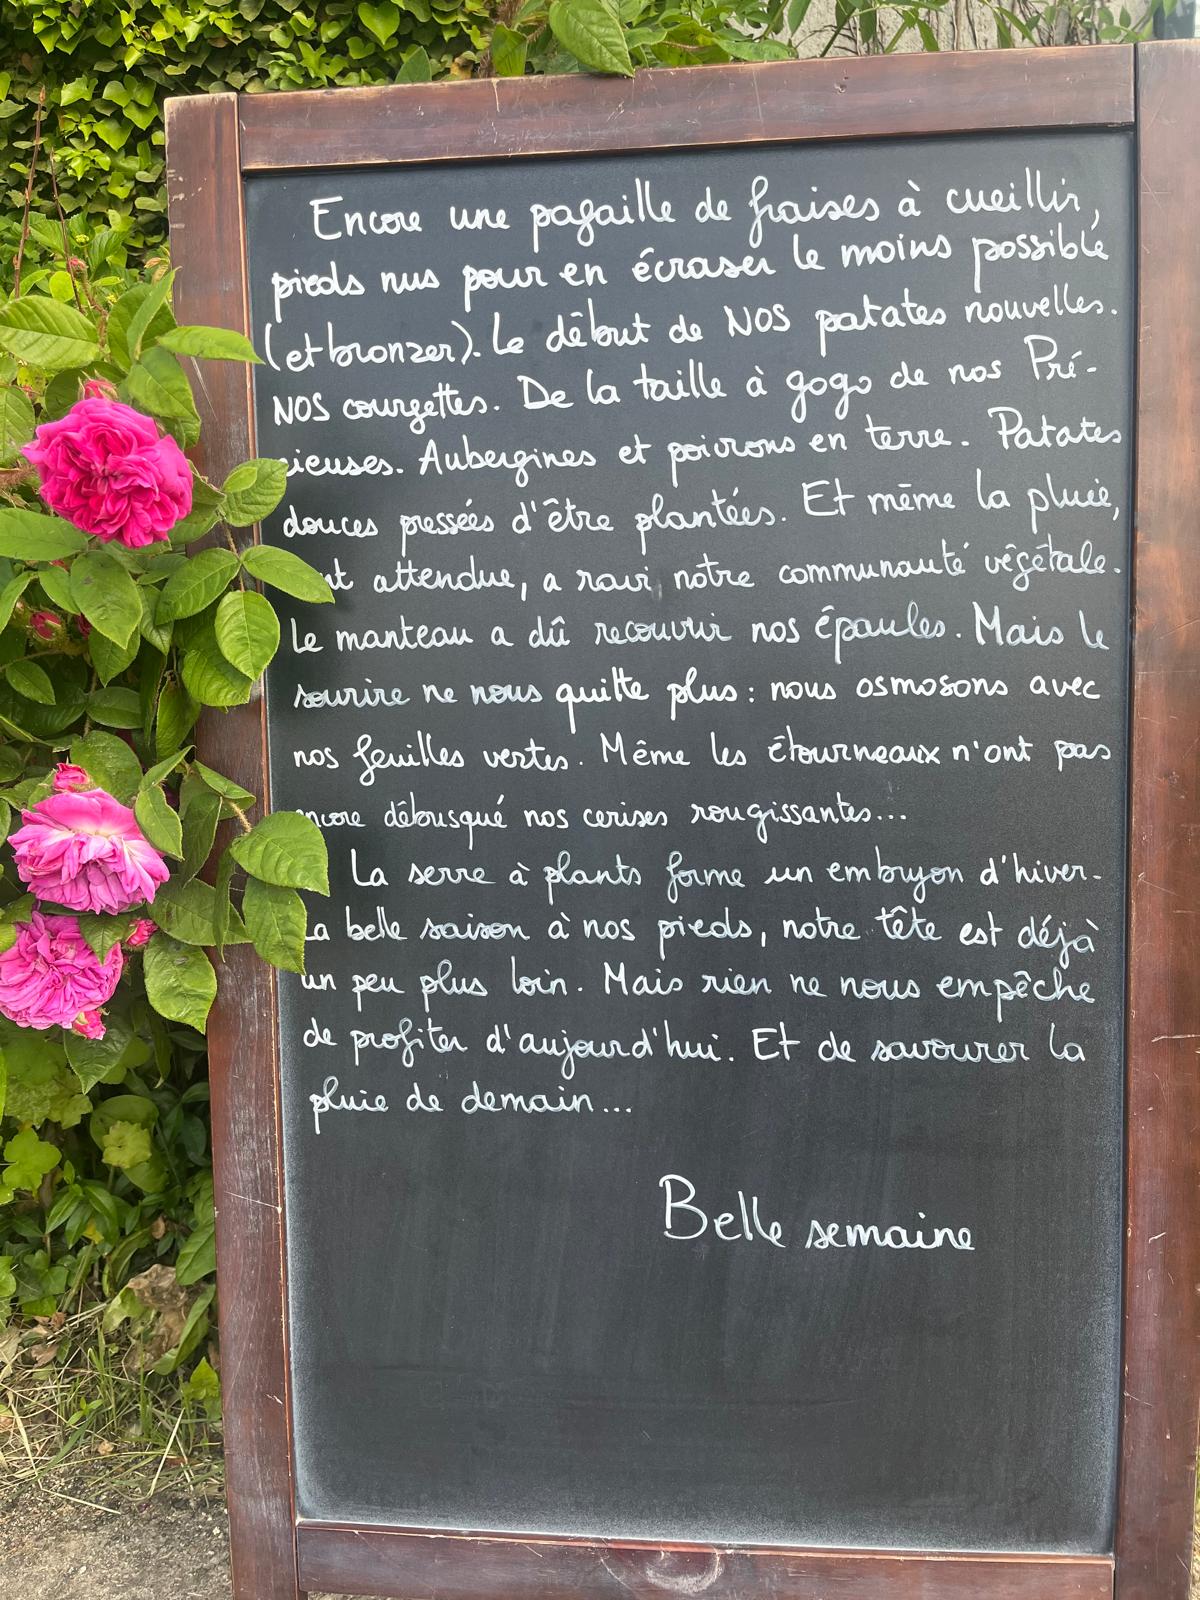 Encore une pagaille de fraises à cueillir,
pieds nus pour en écraser le moins possible
(et bronzer). Le début de NOS patates nouvelles.
NOS courgettes. De la taille à gogo de nos Pré-
cieuses. Aubergines et poivrons en terre. Patates
douces pressées d'être plantées. Et même la pluie,
tant attendue, a ravi notre communauté végétale.
Le manteau a dû recouvrir nos épaules. Mais le
sourire ne nous quitte plus : nous osmosons avec
nos feuilles vertes. Même les étourneaux n'ont pas
encore débusqué nos cerises rougissantes...
La serre à plants forme un embryon d'hiver.
La belle saison à nos pieds, notre tête est déjà
un peu plus loin. Mais rien ne nous empêche
de profiter d'aujourd'hui. Et de savourer la
pluie de demain...
Belle semaine